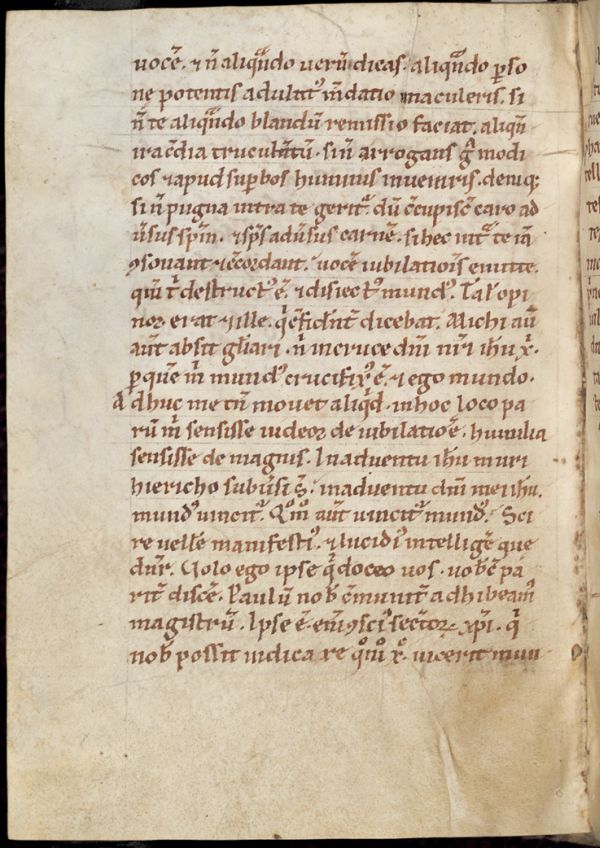 uocē. ⁊ n̄ aliqn̄do uerū dicas. aliqn̄do ꝑso
ne potentis adulat᷒ m̄datio maculeris. si
n̄ te aliqn̄do blandū remissio faciat. aliqn̄
iracūdia truculentū. si n̄ arrogans
cos ⁊ apud suꝑbos humilis inueniris. deniq;
si n̄ pugna intra te gerit᷑. dū ɔcupisc̄ caro ad
ūsus sp̄m. ⁊ sp̄s adūsus carnē. si hec int᷑ te iā
ꝯsonant ⁊ ɔcordant. uocē iubilatiōis emitte.
qm̄ t̄ destruct᷒ ē. ⁊ disiect᷒ mund᷒. Tal᷒ opi
nor erat ⁊ ille. dicebat. Michi aū
aūt absit gl̄iari. n̄ in cruce dn̄i nr̄i ih̄u x̄.
ꝑ quē m̄ mund᷒ crucifix᷒ ē. ⁊ ego mundo.
Adhuc me tn̄ mouet aliqd̄. in hoc loco pa
rū m̄ sensisse uideor de iubilatioē. humilia
sensisse de magnis. In aduentu ih̄u muri
hiericho subūsi s̄. in aduentu dn̄i mei ih̄u.
mund᷒ uincit᷑. Qōm aūt uincit᷑ mund᷒. Sci
re uellē manifesti᷒. ⁊ lucidi᷒ intelligē que
dn̄r. Uolo ego ipse qi doceo uos. uob̄cū pa
rit̄ discē. Paulū nob̄ cōmunit̄ adhibeam᷒
magistrū. Ipse ē. enī ꝯsci᷒ secretoꝝ xp̄i. qi
nob̄ possit indicare qōm x̄. uicerit mun